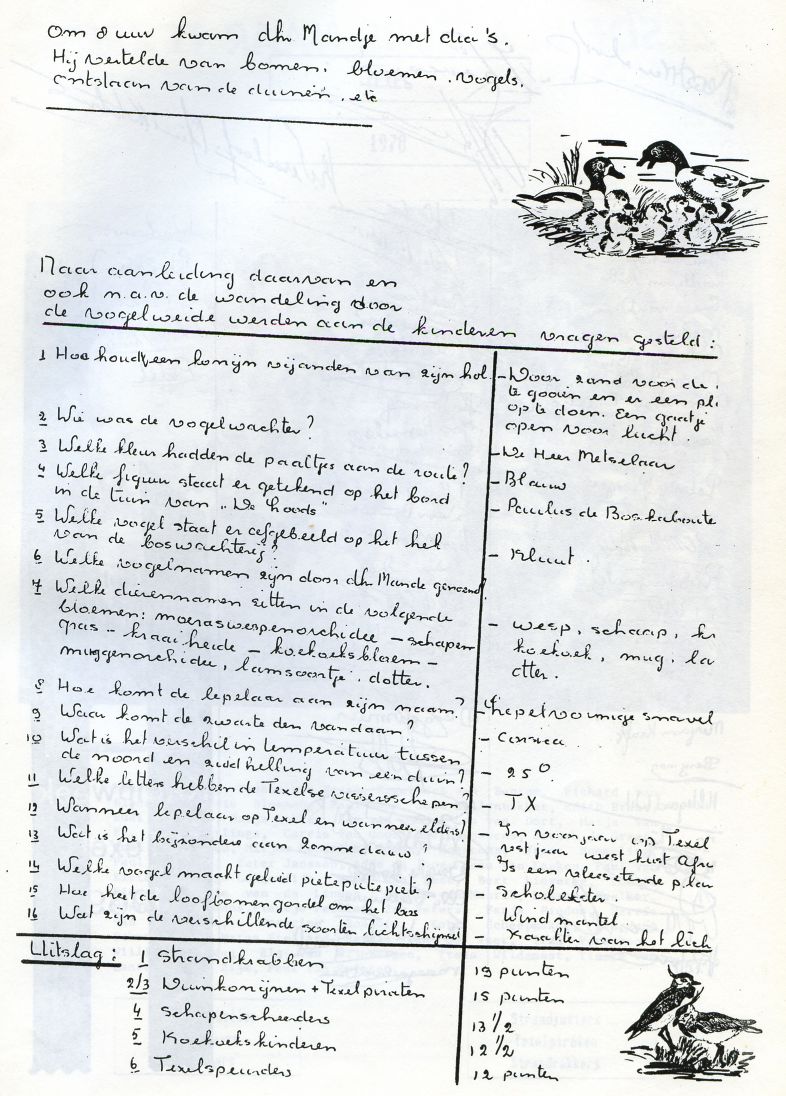 Om 8 uur kwam dhr Mandje met dia's.
Hij vertelde van bomen, bloemen, vogels,
ontstaan van de duinen, etc
Naar aanleiding daarvan en
ook n.a.v. de wandeling door
de vogelweide werden aan de kinderen vragen gesteld:
1 Hoe houdt een konijn vijanden van zijn hol.
- Door zand voor de
te gooien en er een
op te doen. Een gaatje
open voor lucht.
2 Wie was de vogelwachter?
- De Heer Metselaar
3 Welke kleur hadden de paaltjes aan de route?
- Blauw
4 Welke figuur staat er getekend op het bord
in de tuin van "De
- Paulus de Boskaboute
5 Welke vogel staat er afgebeeld op het hek
van de boswachterij?
- Kluut.
6 Welke vogelnamen zijn door dhr Mande genoemd
7 Welke dierennamen zitten in de volgende
bloemen: moeraswespenorchidee - schapen
gras - kraaiheide - koekoeksbloem -
muggenorchidee, lamsoortje, dotter.
- wesp, schaap, kr
koekoek, mug, la
otter.
8 Hoe komt de lepelaar aan zijn naam?
- Lepelvormige snavel
9 Waar komt de zwarte den vandaan?
- Corsica
10 Wat is het verschil in temperatuur tussen
de noord en zuidhelling van een duin?
- 25°
11 Welke letters hebben de Texelse vissersschepen?
- TX
12 Wanneer lepelaar op Texel en wanneer elders?
- In voorjaar op Texel
rest jaar west kust Afri
13 Wat is het bijzondere aan zonnedauw?
- Is een vleesetende plan
14 Welke vogel maakt geluid pietepietepiete?
- Scholekster.
15 Hoe heet de loofbomengordel om het bos
- Windmantel
16 Wat zijn de verschillende soorten lichtschijnsel
- Karakter van het lich
Uitslag: 1 Strandkrabben 19 punten
2/3 Duinkonijnen + Texelpiraten 15 punten
4 Schapenscheerders 13 1/2
5 Koekoekskinderen 12 1/2
6 Texelspeurders 12 punten